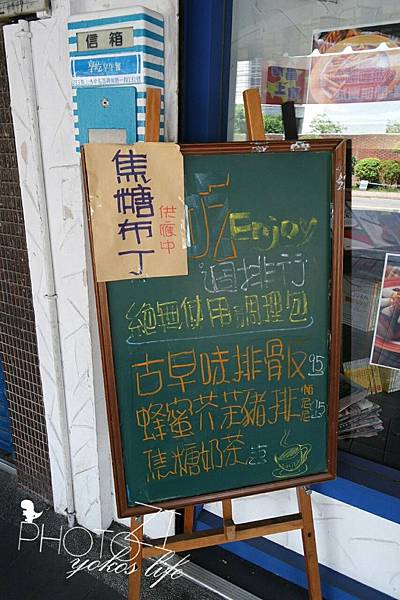 信箱
焦糖布丁
供應中
Enjoy
絕不使用調理包
古早味排骨飯 95
蜂蜜芥茉豬排帕尼尼 115
焦糖奶茶
PHOTO
yokos life